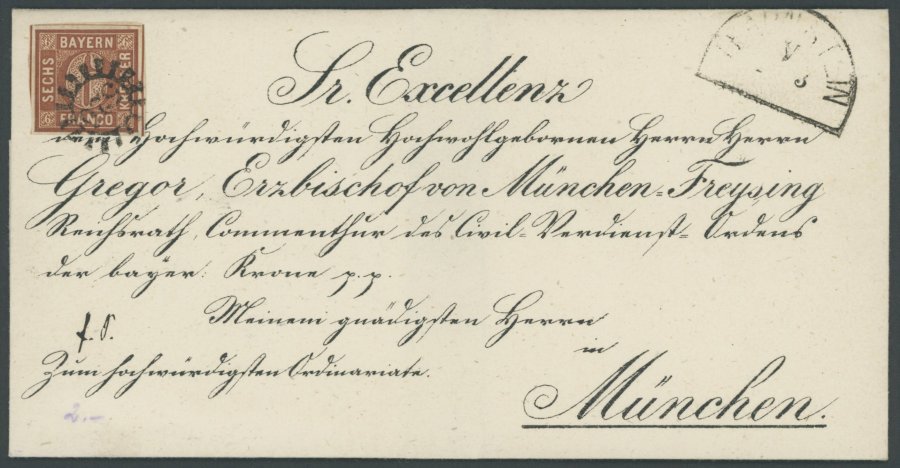 BAYERN
SECHS
KREUZER
FRANCO
6
V
3
Sr. Excellenz
dem Hochwürdigsten Hochwohlgebornen Herrn Herrn
Gregor, Erzbischof von München-Freysing
Reichsrath, Commenthur des Civil-Verdienst-Ordens
der bayer: Krone p.p.
Meinem gnädigsten Herrn
f. S.
in
Zum hochwürdigsten Ordinariate.
München.
2.-